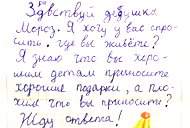 Здвствуй дедушка
Мороз. Я хочу у вас спро-
сить. где вы живёте?
Я знаю что вы хоро-
шим детям приносите
хорошие подарки, а пло-
хим что вы приносите?
Жду ответа!